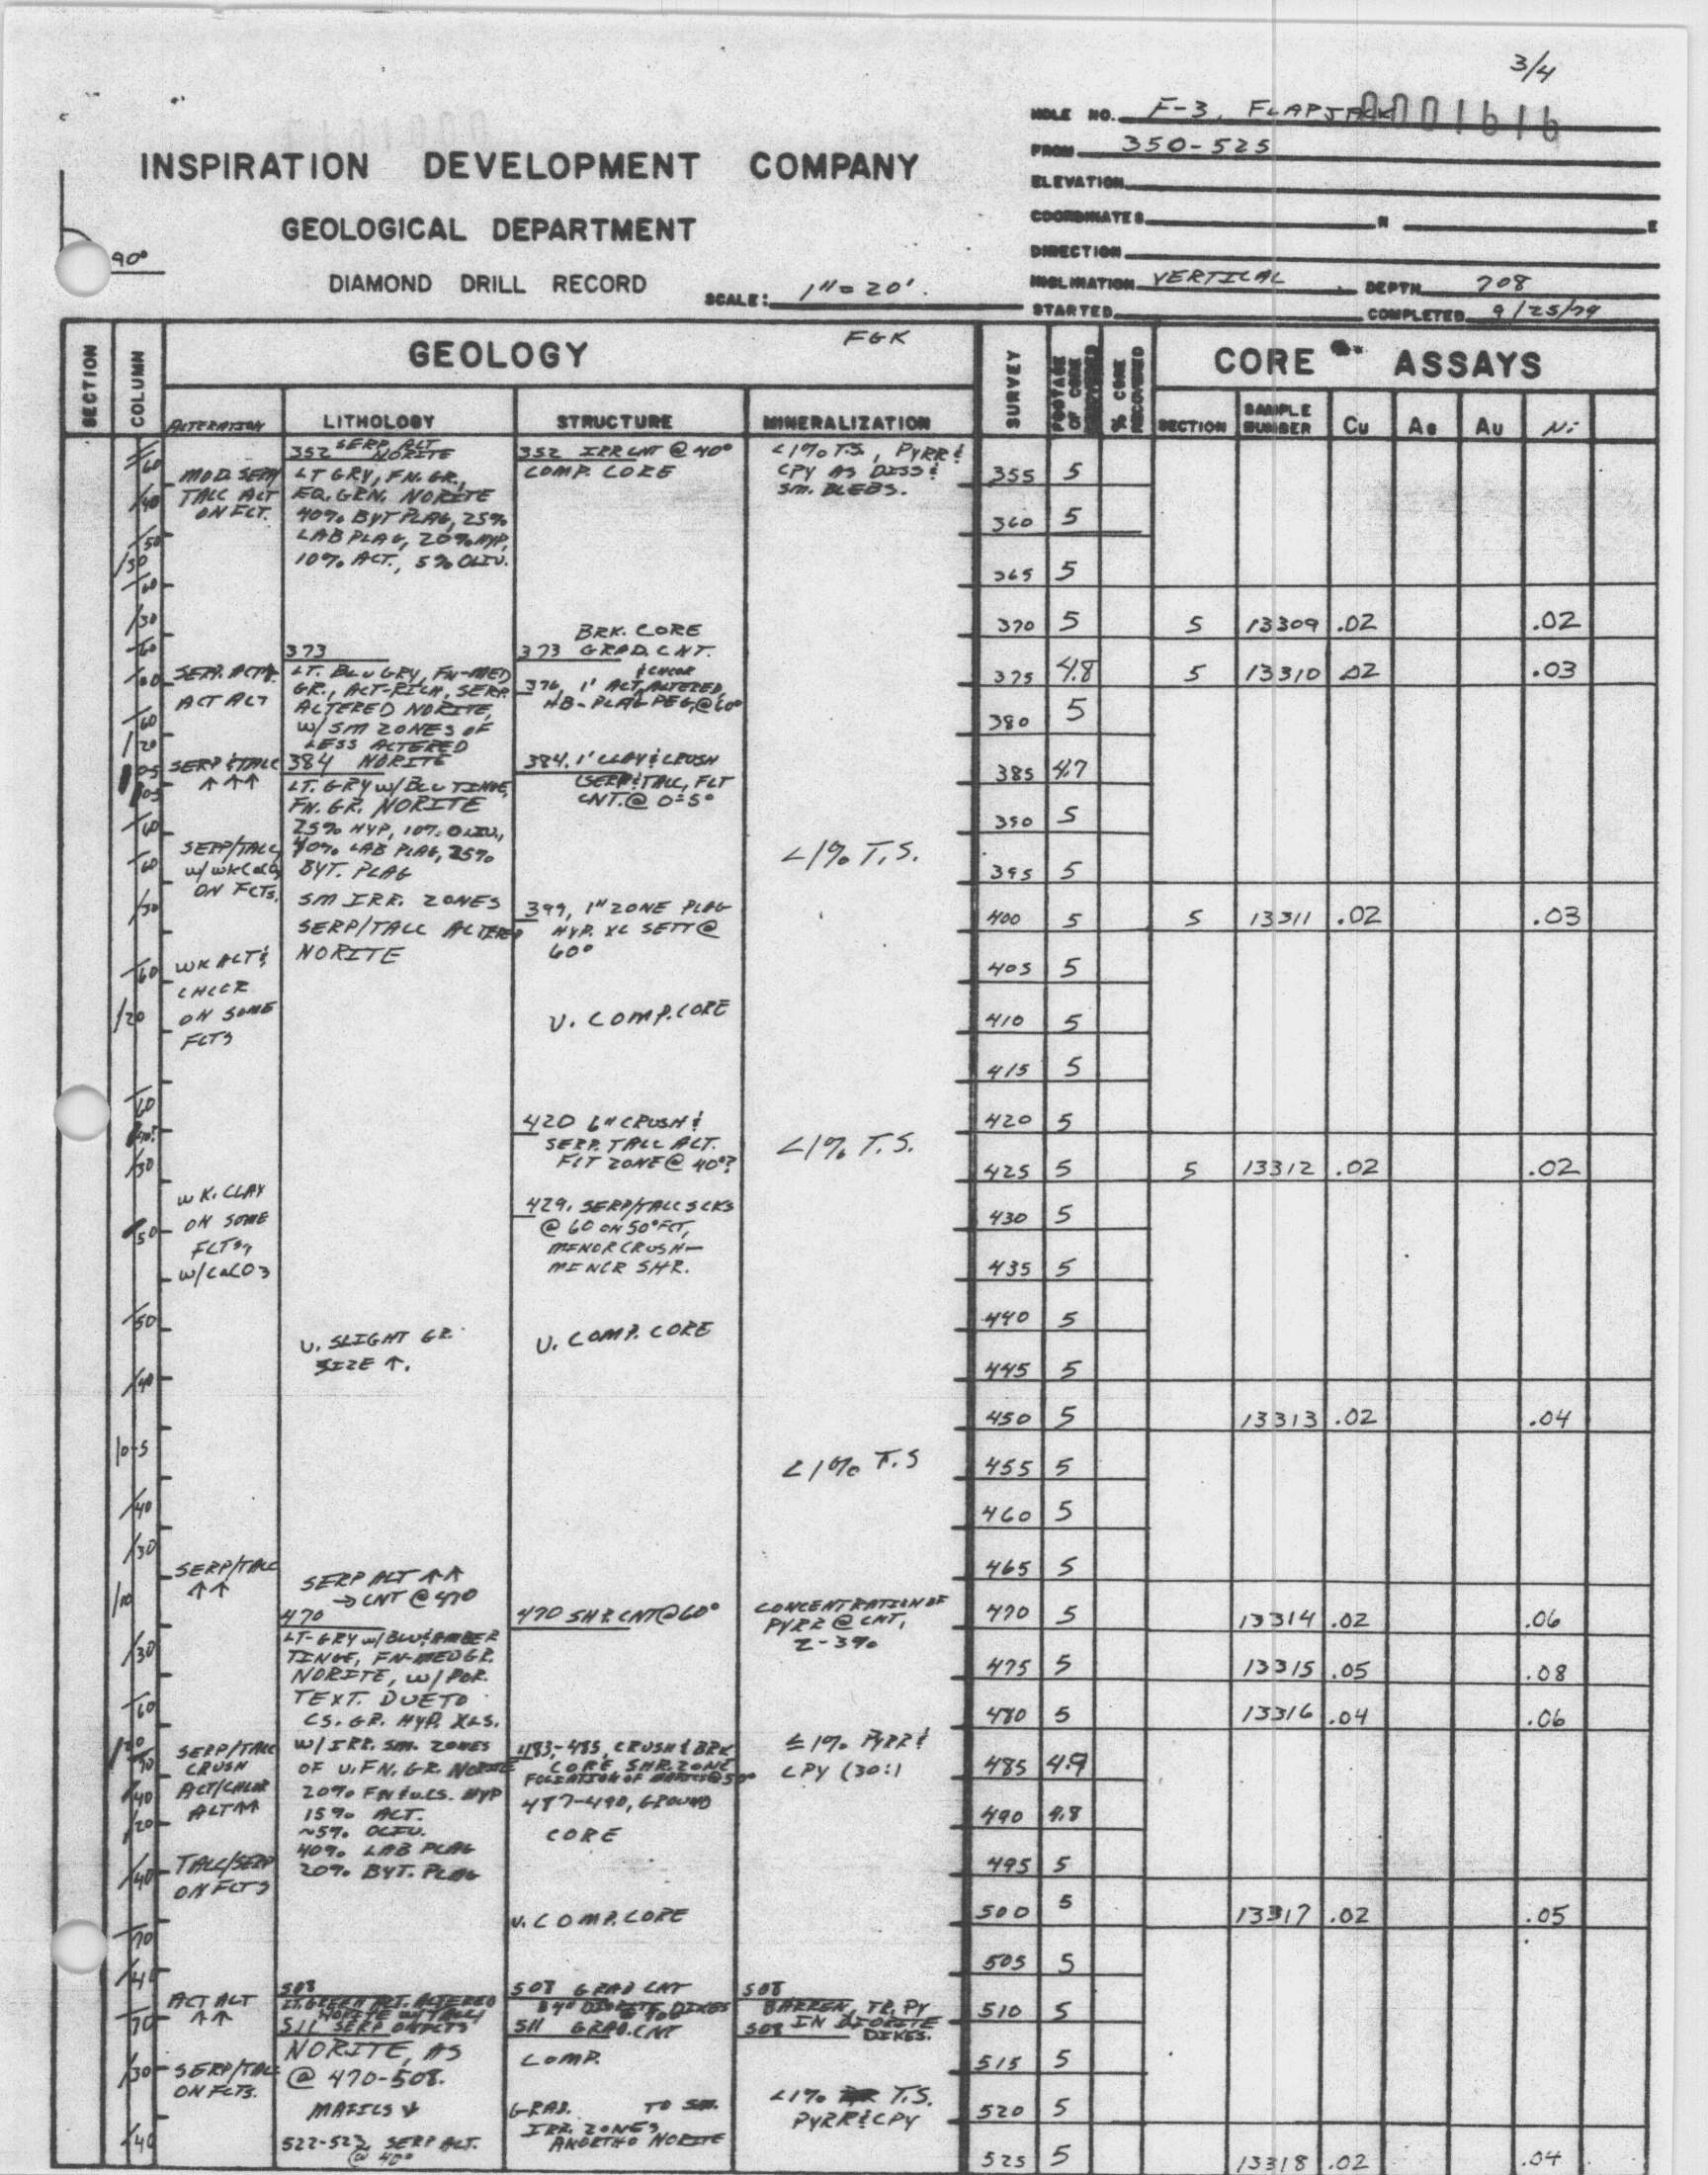 3/4
HOLE NO. F-3, FLAPJACK
0001616
FROM 350-525
ELEVATION
COORDINATES N E
DIRECTION
INCLINATION VERTICAL DEPTH 708
STARTED COMPLETED 9/25/79
INSPIRATION DEVELOPMENT COMPANY
GEOLOGICAL DEPARTMENT
DIAMOND DRILL RECORD
SCALE: 1"=20'
90°
SECTION
COLUMN
GEOLOGY FGK
SURVEY
FOOTAGE OF CORE
% CORE RECOVERED
CORE ASSAYS
ALTERATION LITHOLOGY STRUCTURE MINERALIZATION
SECTION SAMPLE NUMBER Cu Au Ni
MOD. SERP
TALC ALT
ON FCT.
SERP. ALT.
ACT ALT
SERP & TALC
↑↑↑
SERP/TALC
ON FCTS.
WK ALT &
CHLOR
ON SOME
FCTS
WK. CLAY
ON SOME
FCTS,
W/CaCO3
SERP/TALC
↑↑
SERP/TALC
CRUSH
ACT/CHLOR
ALT↑↑
TALC/SERP
ON FCTS
ACT ALT
↑↑
SERP/TALC
ON FCTS.
352 SERP ALT
NORITE
LT GRY, FN. GR.,
EQ. GRN. NORITE
40% BYT PLAG, 25%
LAB PLAG, 20% HYP,
10% ACT., 5% OLIV.
373
LT. BLU GRY, FN-MED
GR., ACT-RICH, SERP.
ALTERED NORITE,
W/ SM ZONES OF
LESS ALTERED
384 NORITE
LT. GRY W/ BLU TINGE,
FN. GR. NORITE
25% HYP, 10% OLIV.,
40% LAB PLAG, 25%
BYT. PLAG
SM IRR. ZONES
SERP/TALC ALTERED
NORITE
V. SLIGHT GR.
SIZE ↑.
SERP ALT ↑↑
→ CNT @ 470
470
LT-GRY W/ BLU & AMBER
TINGE, FN-MED GR.
NORITE, W/ POR.
TEXT. DUE TO
CS. GR. HYP. XLS.
W/ IRR. SM. ZONES
OF V. FN. GR. NORITE
20% FN & CS. HYP
15% ACT.
~5% OLIV.
40% LAB PLAG
20% BYT. PLAG
508
LT. GREEN ACT. ALTERED
NORITE W/ TALC/
511 SERP ON FCTS
NORITE, AS
@ 470-508.
MAFICS ↓
522-523 SERP ALT.
@ 40°
352 IRR CNT @ 40°
COMP. CORE
BRK. CORE
373 GRAD. CNT.
& CHLOR
376, 1' ACT ALTERED,
HB-PLAG PEG @ 60°
384, 1' CLAY & CRUSH
(SERP & TALC, FLT
CNT. @ 0-5°
399, 1" ZONE PLAG
HYP. XL SETT @
60°
V. COMP. CORE
420 6" CRUSH &
SERP. TALC ALT.
FLT ZONE @ 40°?
429, SERP/TALC SCKS
@ 60 ON 50° FCT,
MINOR CRUSH-
MINOR SHR.
V. COMP. CORE
470 SHR CNT @ 60°
483-485, CRUSH & BRK
CORE, SHR. ZONE
487-490, GROUND
CORE
V. COMP. CORE
508 GRAD CNT
DIORITE DIKES
511 GRAD. CNT
COMP.
GRAD. TO SM.
IRR. ZONES
ANORTHO NORITE
<1% T.S., PYRR &
CPY AS DISS &
SM. BLEBS.
<1% T.S.
<1% T.S.
<1% T.S
CONCENTRATION OF
PYRR @ CNT,
2-3%
≤1% PYRR &
CPY (30:1
508
BARREN, TR. PY
IN DIORITE
508 DIKES.
<1% T.S.
PYRR & CPY
355 5
360 5
365 5
370 5 5 13309 .02 .02
375 4.8 5 13310 .02 .03
380 5
385 4.7
390 5
395 5
400 5 5 13311 .02 .03
405 5
410 5
415 5
420 5
425 5 5 13312 .02 .02
430 5
435 5
440 5
445 5
450 5 13313 .02 .04
455 5
460 5
465 5
470 5 13314 .02 .06
475 5 13315 .05 .08
480 5 13316 .04 .06
485 4.9
490 4.8
495 5
500 5 13317 .02 .05
505 5
510 5
515 5
520 5
525 5 13318 .02 .04